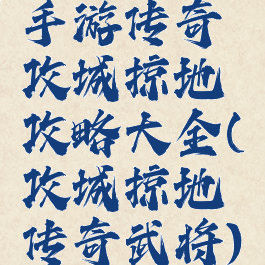 手游传奇
攻城掠地
攻略大全(
攻城掠地
传奇武将)